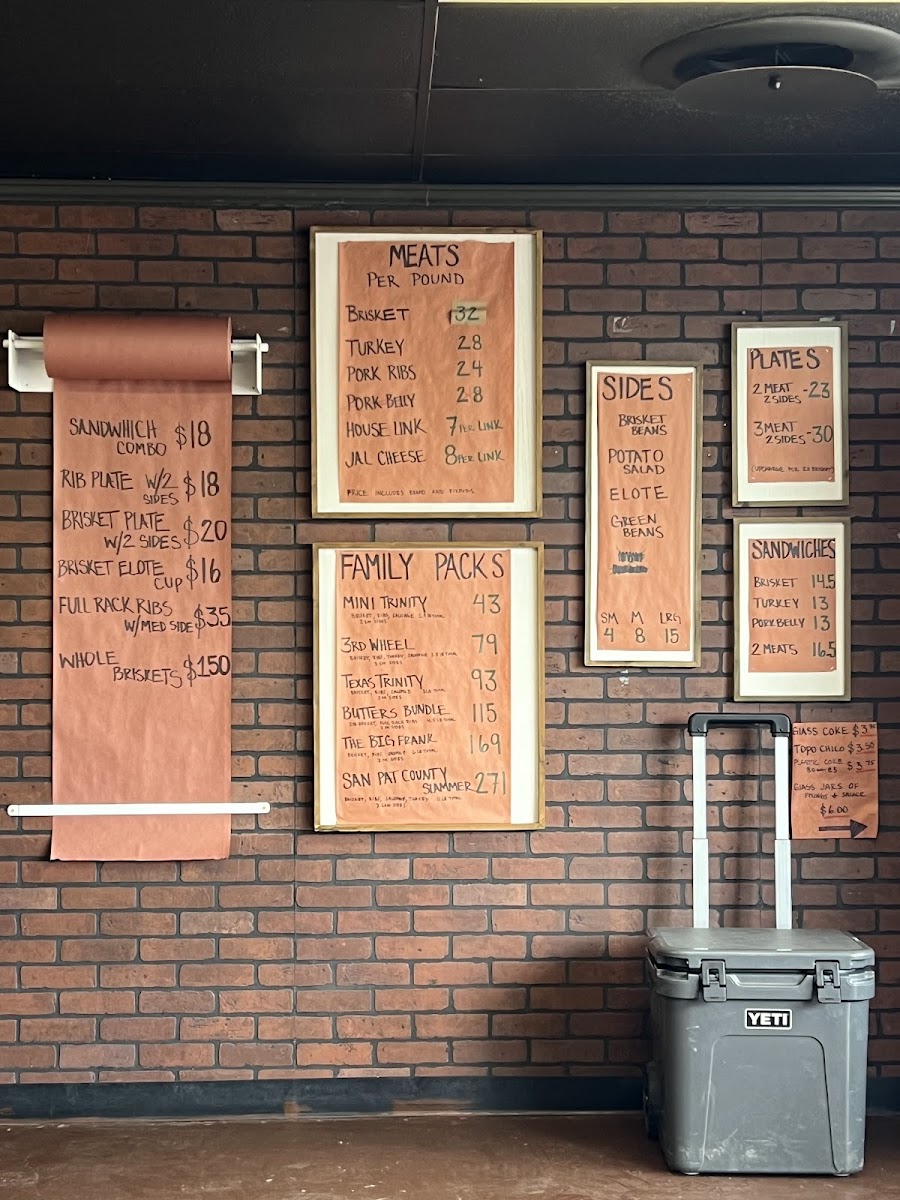 SANDWHICH
COMBO $18
RIB PLATE W/2
SIDES $18
BRISKET PLATE
W/2 SIDES $20
BRISKET ELOTE
CUP $16
FULL RACK RIBS
W/MED SIDE $35
WHOLE
BRISKETS $150
MEATS
PER POUND
BRISKET 32
TURKEY 28
PORK RIBS 24
PORK BELLY 28
HOUSE LINK 7 PER LINK
JAL CHEESE 8 PER LINK
PRICE INCLUDES BREAD AND
FAMILY PACKS
MINI TRINITY 43
BRISKET, RIBS, SAUSAGE
2 SM SIDES
3RD WHEEL 79
BRISKET, RIBS, TURKEY, SAUSAGE
3 SM SIDES
TEXAS TRINITY 93
BRISKET, RIBS, SAUSAGE
BUTTERS BUNDLE 115
THE BIG FRANK 169
BRISKET, RIBS, SAUSAGE
SAN PAT COUNTY
SLAMMER 271
BRISKET, RIBS, SAUSAGE, TURKEY
SIDES
BRISKET
BEANS
POTATO
SALAD
ELOTE
GREEN
BEANS
SM M LRG
4 8 15
PLATES
2 MEAT
2 SIDES -23
3 MEAT
2 SIDES -30
(UPCHARGE FOR EX BRISKET)
SANDWICHES
BRISKET 14.5
TURKEY 13
PORK BELLY 13
2 MEATS 16.5
GLASS COKE $3
TOPO CHICO $3.50
PLASTIC COKE
$3.75
GLASS JARS OF
$6.00
YETI